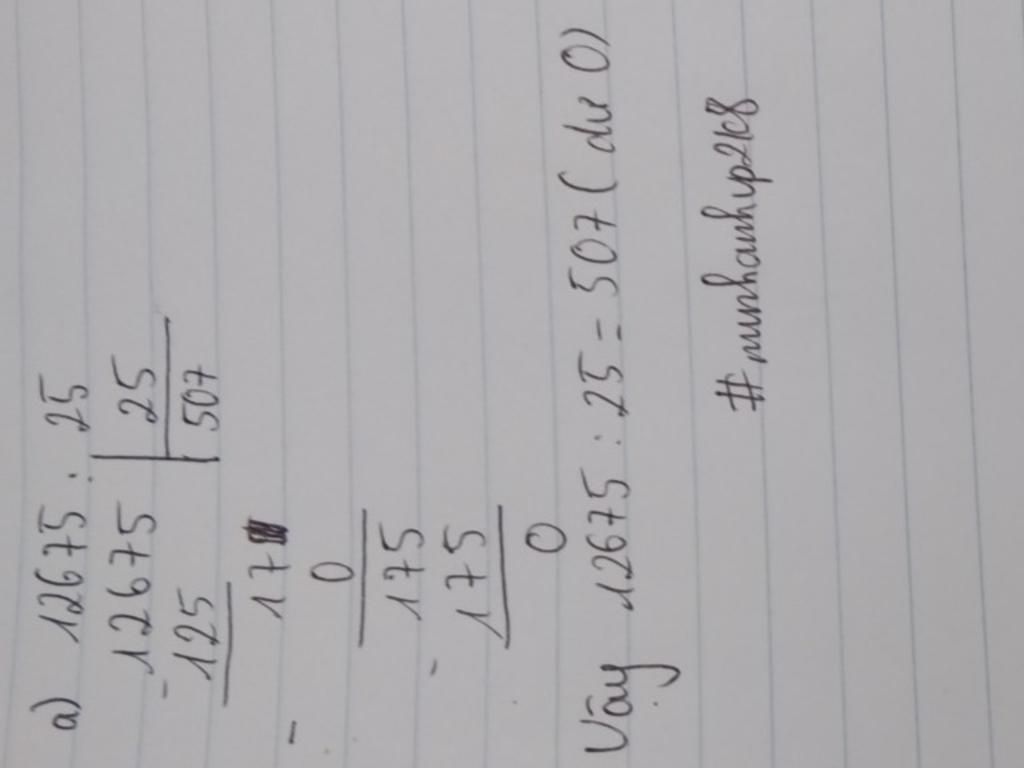 a) 12675 : 25
- 12675 | 25
125 | 507
- 17
0
175
- 175
0
Vậy 12675 : 25 = 507 ( dư 0)
#minhanhvp2k8